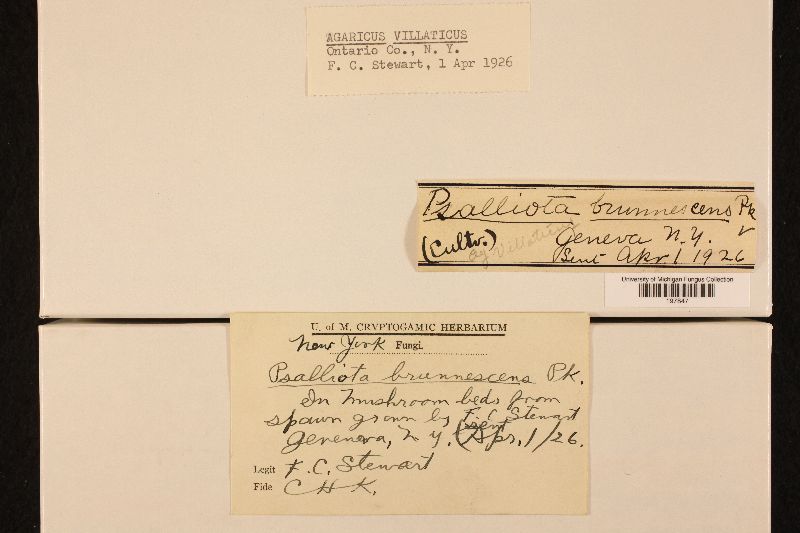 AGARICUS VILLATICUS
Ontario Co., N. Y.
F. C. Stewart, 1 Apr 1926
Psalliota brunnescens Pk
(Cultv.) Geneva N.Y.
Ag Villaticus
Sent Apr 1 1926
University of Michigan Fungus Collection
197847
U. of M. CRYPTOGAMIC HERBARIUM
New York Fungi.
Psalliota brunnescens Pk.
In mushroom beds from
spawn grown by F. C. Stewart
Geneneva, N Y. (sent Apr. 1/26.
Legit F. C. Stewart
Fide C H K.